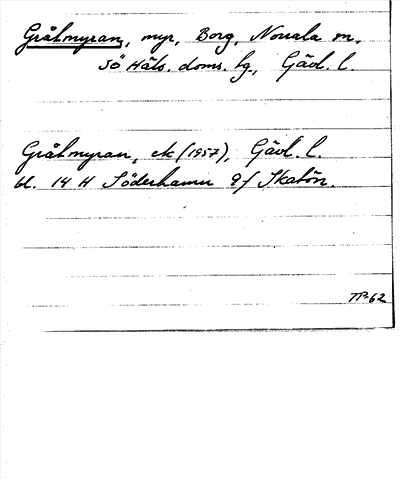 Gråtmyran, myr, Borg, Norrala sn.
SÖ Häls. doms. hg., Gävl. l.
Gråtmyran, ek (1957), Gävl. l.
bl. 14 H Söderhamn 9f Skatön.
TP-62